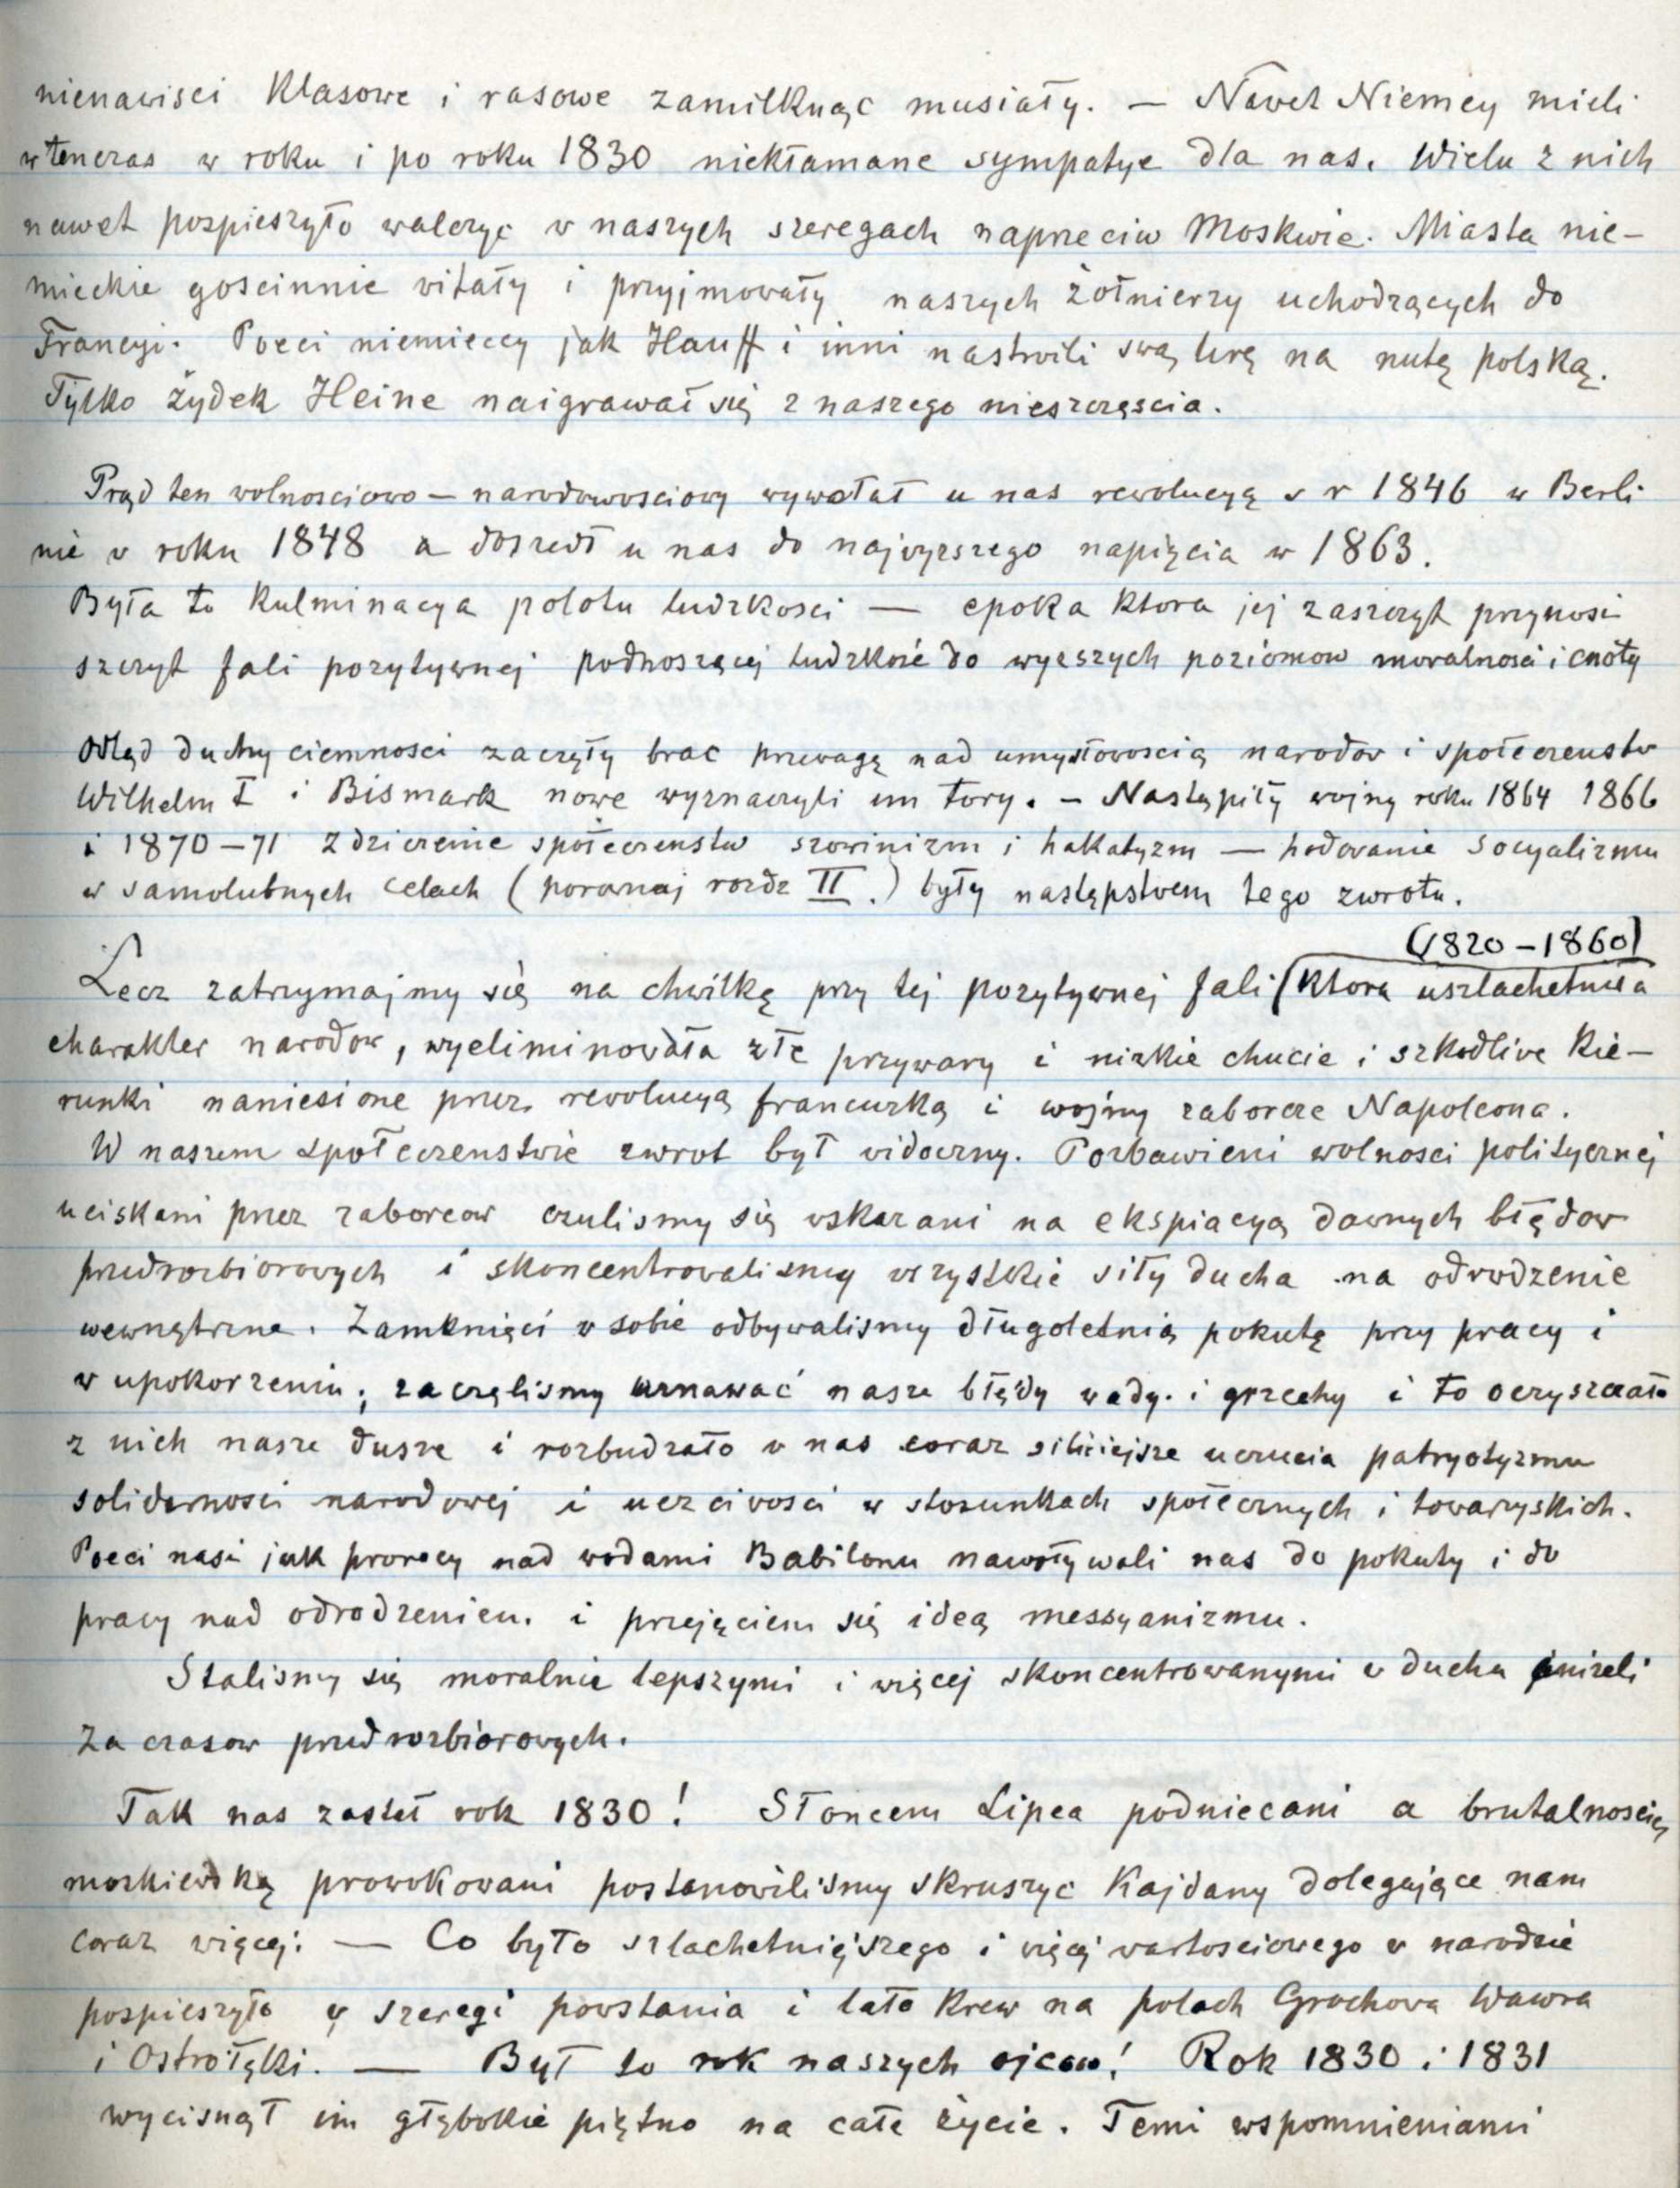 nienawisci klasowe i rasowe zamilknąc musiały. — Nawet Niemcy mieli
wtenczas w roku i po roku 1830 niekłamane sympatye dla nas. Wielu z nich
nawet pospieszyło walczyc w naszych szeregach naprzeciw Moskwie. Miasta nie-
mieckie goscinnie witały i przyjmowały naszych żołnierzy uchodzących do
Francyi. Poeci niemieccy jak Hauff i inni nastroili swą lirę na nutę polską.
Tylko żydek Heine naigrawał się z naszego nieszczęscia.
Prąd ten wolnosciowo — narodowosciowy wywołał u nas rewolucyą w r 1846 w Berli
nie w roku 1848 a doszedł u nas do najwyzszego napięcia w 1863.
Była to kulminacya polotu ludzkosci — epoka ktora jej zaszczyt przynosi
szczyt fali pozytywnej podnoszącej ludzkość do wyzszych poziomow moralnosci i cnoty
Odtąd duchy ciemnosci zaczęły brac przewagę nad umysłowoscią narodow i społeczenstw
Wilhelm I i Bismark nowe wyznaczyli im tory. — Nastąpiły wojny roku 1864 1866
i 1870 — 71 zdziczenie społeczenstw szowinizm i hakatyzm — hodowanie socyalizmu
w samolubnych celach (porownaj rozdz II.) były następstwem tego zwrotu.
(1820 — 1860)
Lecz zatrzymajmy się na chwilkę przy tej pozytywnej fali ktora uszlachetniła
charakter narodow, wyeliminowała złe przywary i nizkie chucie i szkodliwe kie-
runki naniesione przez rewolucyą francuzką i wojny zaborcze Napoleona.
W naszem społeczenstwie zwrot był widoczny. Pozbawieni wolnosci politycznej
uciskani przez zaborcow czulismy się wskazani na ekspiacyą dawnych błędow
przedrozbiorowych i skoncentrowalismy wszystkie siły ducha na odrodzenie
wewnętrzne. Zamknięci w sobie odbywalismy długoletnią pokutę przy pracy i
w upokorzeniu; zaczęlismy uznawać nasze błędy wady i grzechy i to oczyszczało
z nich nasze dusze i rozbudzało w nas coraz silniejsze uczucia patryotyzmu
solidarnosci narodowej i uczciwosci w stosunkach społecznych i towarzyskich.
Poeci nasi jak prorocy nad wodami Babilonu nawoływali nas do pokuty i do
pracy nad odrodzeniem i przejęciem się ideą messyanizmu.
Stalismy się moralnie lepszymi i więcej skoncentrowanymi w duchu anizeli
za czasow przedrozbiorowych.
Tak nas zastał rok 1830! Słoncem Lipca podniecani a brutalnoscią
moskiewską prowokowani postanowilismy skruszyc kajdany dolegające nam
coraz więcej: — Co było szlachetniejszego i więcej wartosciowego w narodzie
pospieszyło w szeregi powstania i lało krew na polach Grochowa Wawra
i Ostrołęki. — Był to rok naszych ojcow! Rok 1830 i 1831
wycisnął im głębokie piętno na całe życie. Temi wspomnieniami